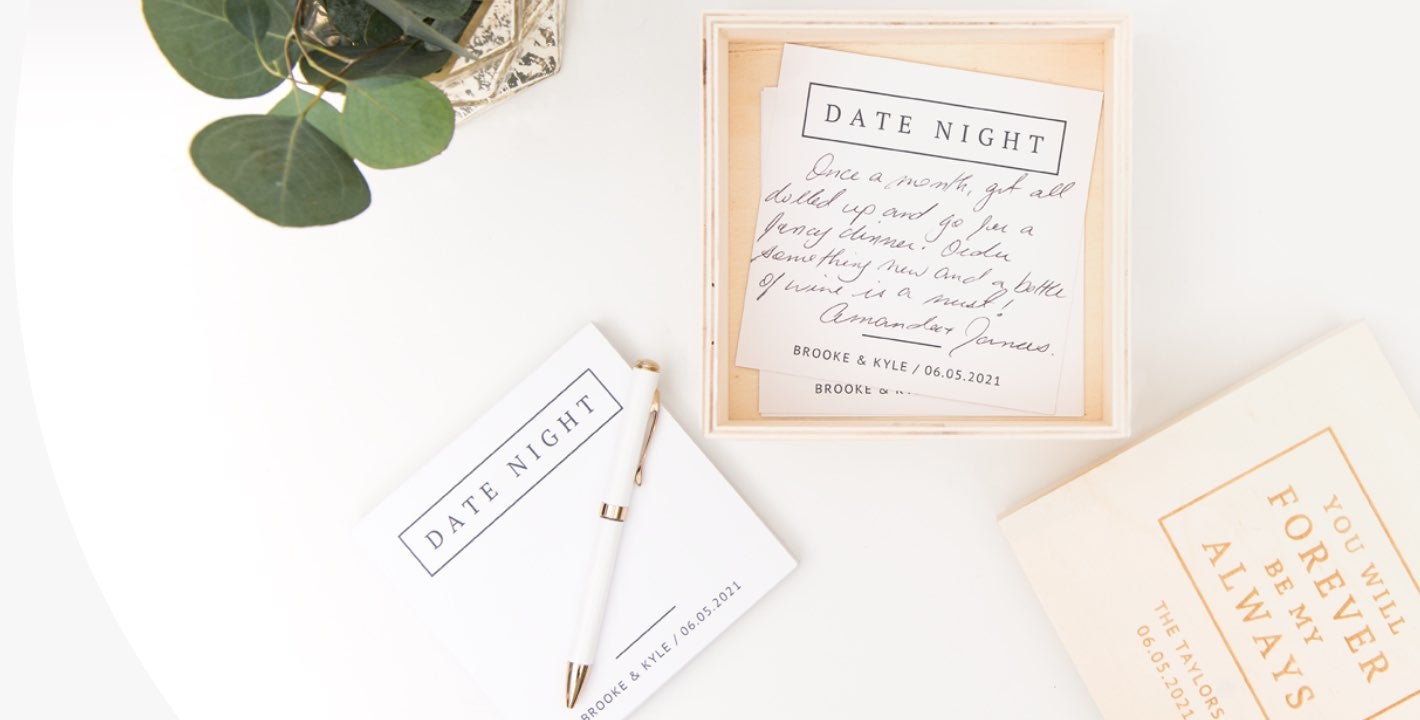 DATE NIGHT
Once a month, get all
dolled up and go for a
fancy dinner. Order
something new and a bottle
of wine is a must!
Amanda + James.
BROOKE & KYLE / 06.05.2021
BROOKE & K
DATE NIGHT
BROOKE & KYLE / 06.05.2021
YOU WILL
FOREVER
BE MY
ALWAYS
THE TAYLORS
06.05.2021